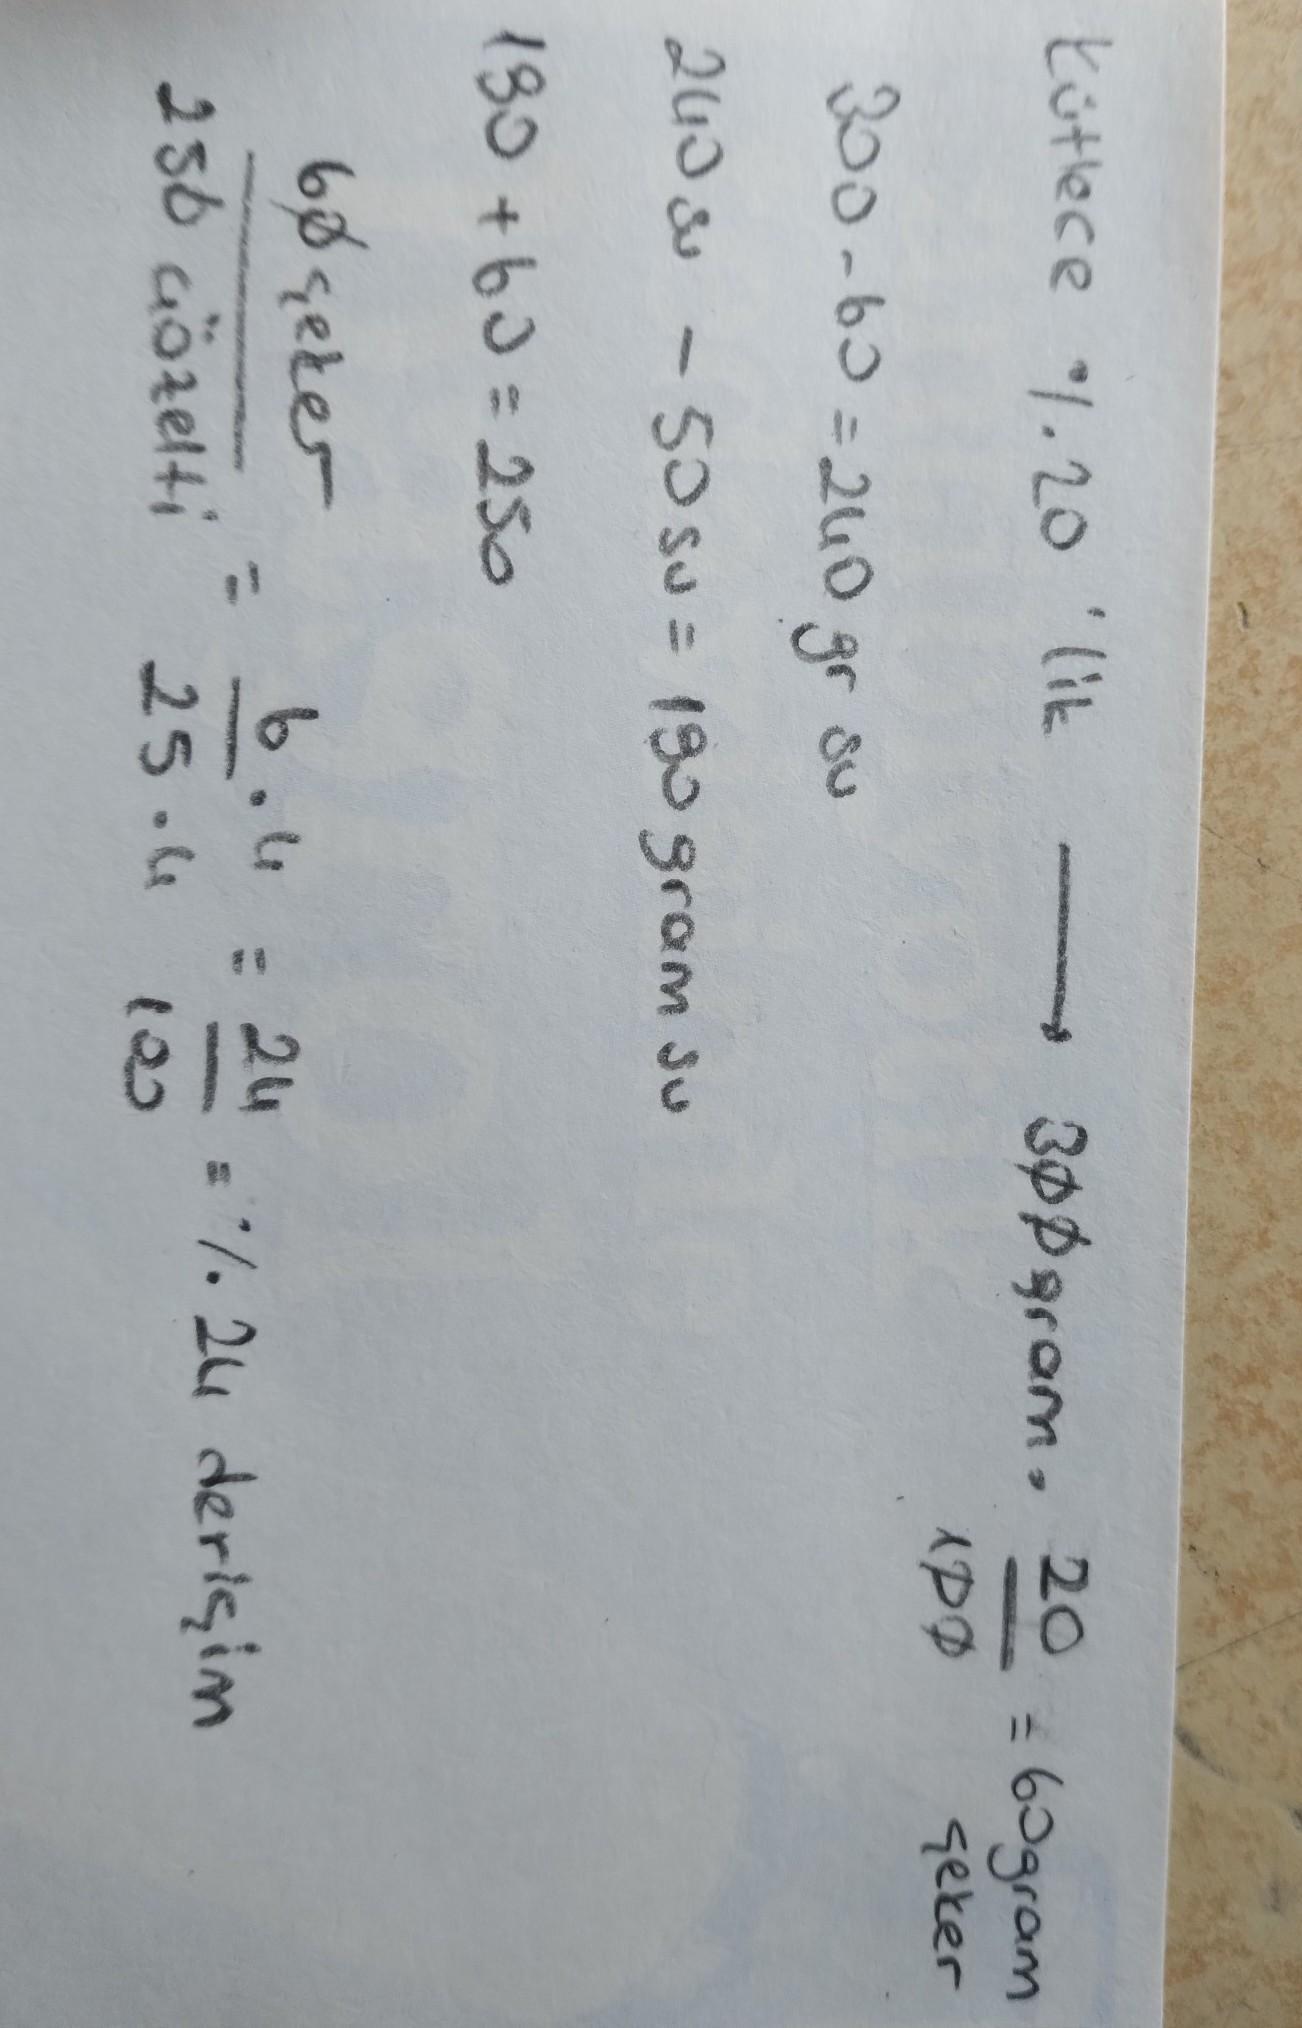 kütlece %20'lik → 300 gram . 20/100 = 60 gram şeker
300 - 60 = 240 gr su
240 su - 50 su = 190 gram su
190 + 60 = 250
60 şeker / 250 çözelti = 6.4 / 25.4 = 24/100 = %24 derişim